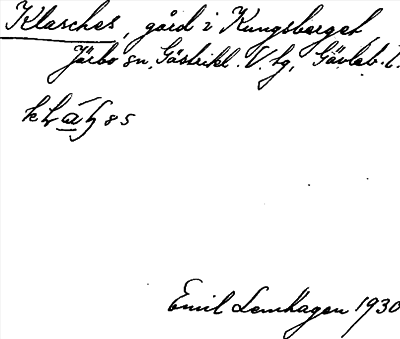 Klasches, gård i Kungsberget,
Järbo sn, Gästrikl. V. tg, Gävleb. l.
Emil Lemhagen 1930